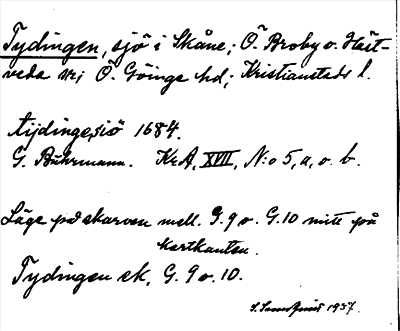 Tydingen, sjö i Skåne; Ö Broby o. Häst-
veda sr; Ö. Göinge hd; Kristianstads l.
tijdingesiö 1684.
G. Buhrmann. KrA, XVII, N:o 5, a, o. b.
Läge på skarven mell. G.9 o. G.10 mitt på
kartkanten.
Tydingen ek. G. 9 o. 10.
1937.